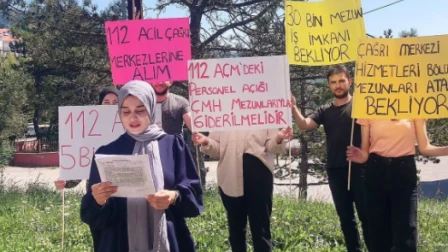 112 ACİL ÇAĞRI
MERKEZLERİNE
ALIM
112 AÇM'DEKİ
Personel AÇIĞI
ÇMH MEZUNLARIYLA
GİDERİLMELİDİR
30 BİN MEZUN
İŞ İMKANI
BEKLİYOR
ÇAĞRI MERKEZİ
HİZMETLERİ BÖLÜ
MEZUNLARI ATA
BEKLİYOR
112 A
5 B